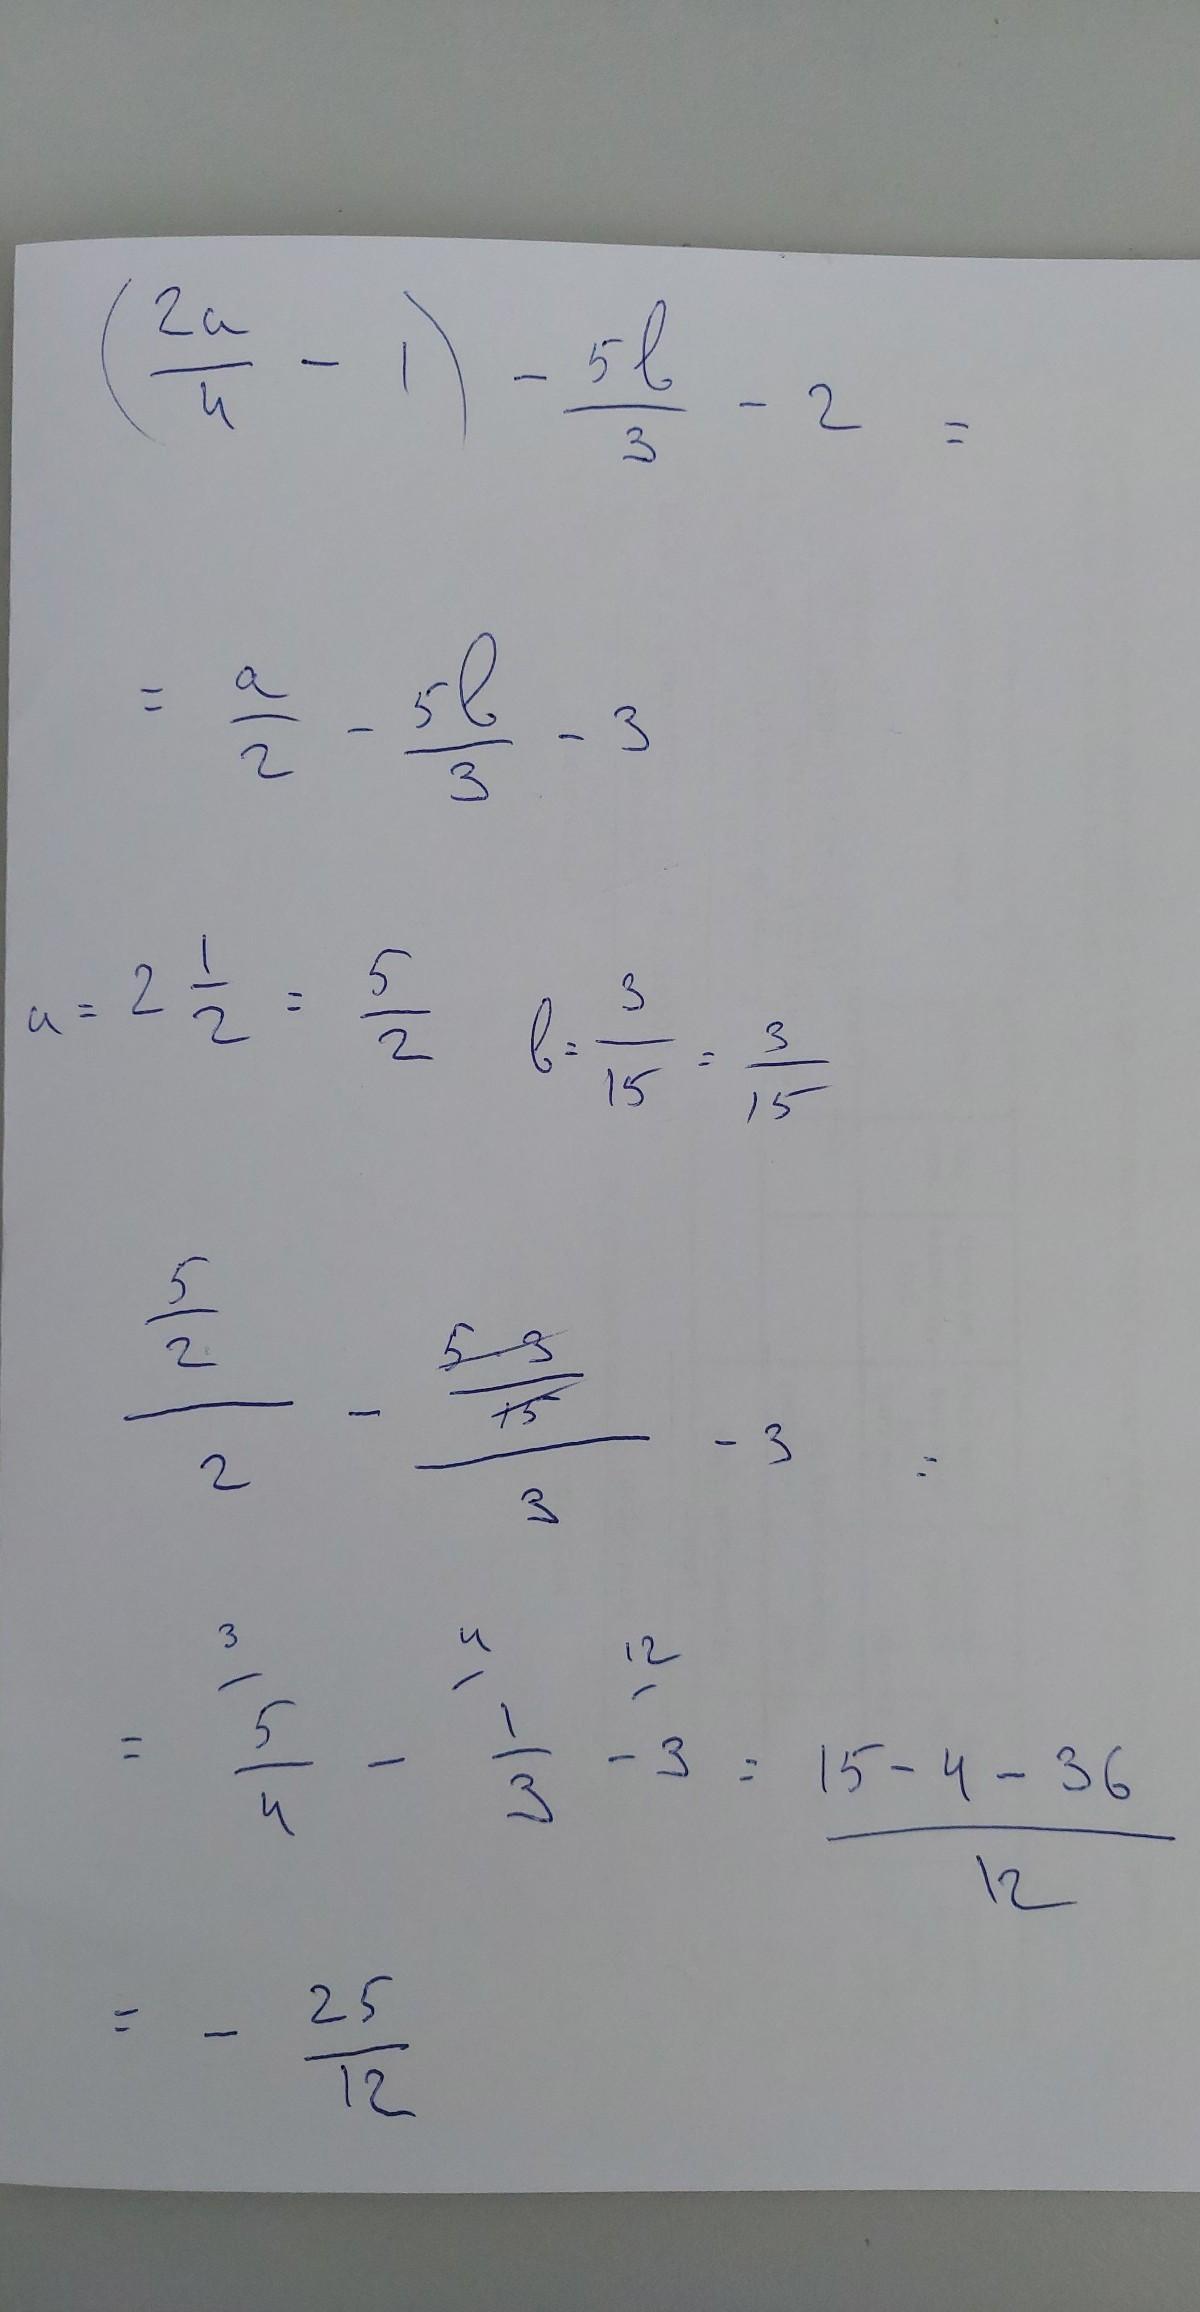 (2a/4 - 1) - 5b/3 - 2 =
= a/2 - 5b/3 - 3
a = 2 1/2 = 5/2 b = 3/15 = 3/15
5/2/2 - 5·3/15/3 - 3 =
3 4 12
= 5/4 - 1/3 - 3 = 15 - 4 - 36/12
= - 25/12